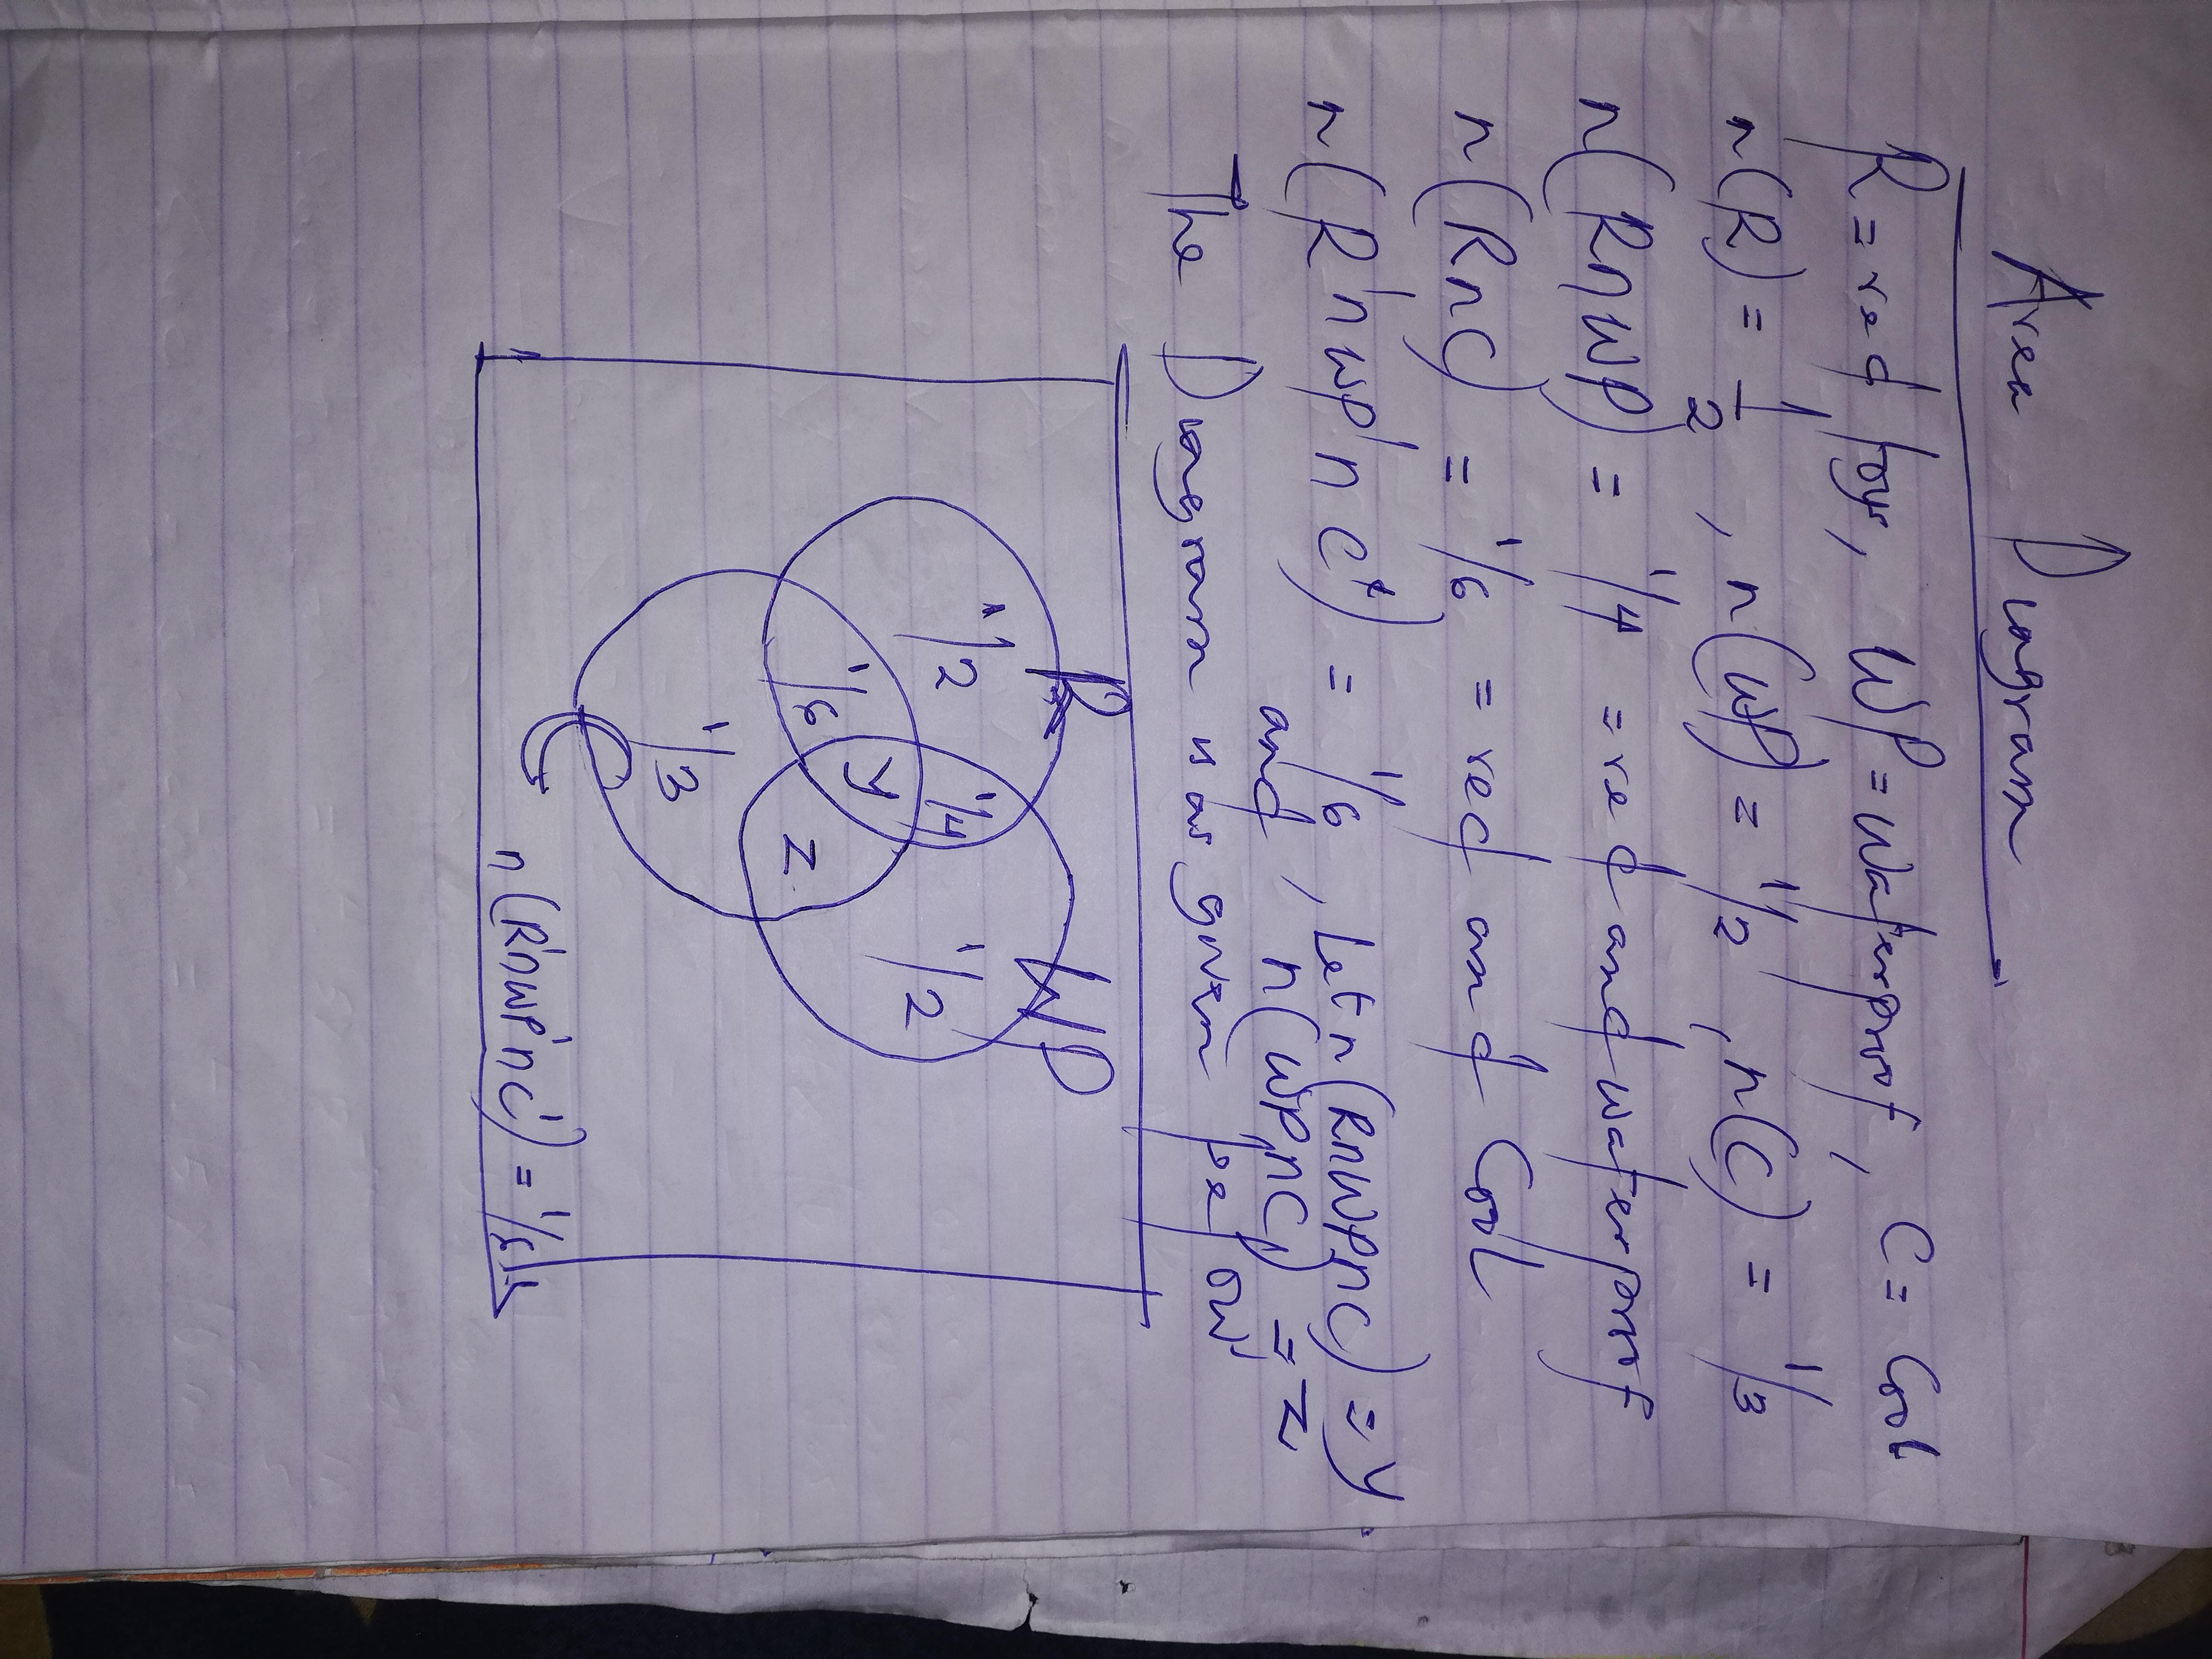 Area Diagram
R = red toys, WP = Waterproof, C = Cool
n(R) = 1/2, n(WP) = 1/2, n(C) = 1/3
n(RnWP) = 1/4 = red and waterproof
n(RnC) = 1/6 = red and Cool
n(R'nWP'nC') = 1/6, Let n(RnWPnC) = y
and n(WPnC) = z
The Diagram is as given below
R WP
1/2 1/4 1/2
1/6 y z
1/3
C
n(R'nWP'nC') = 1/6